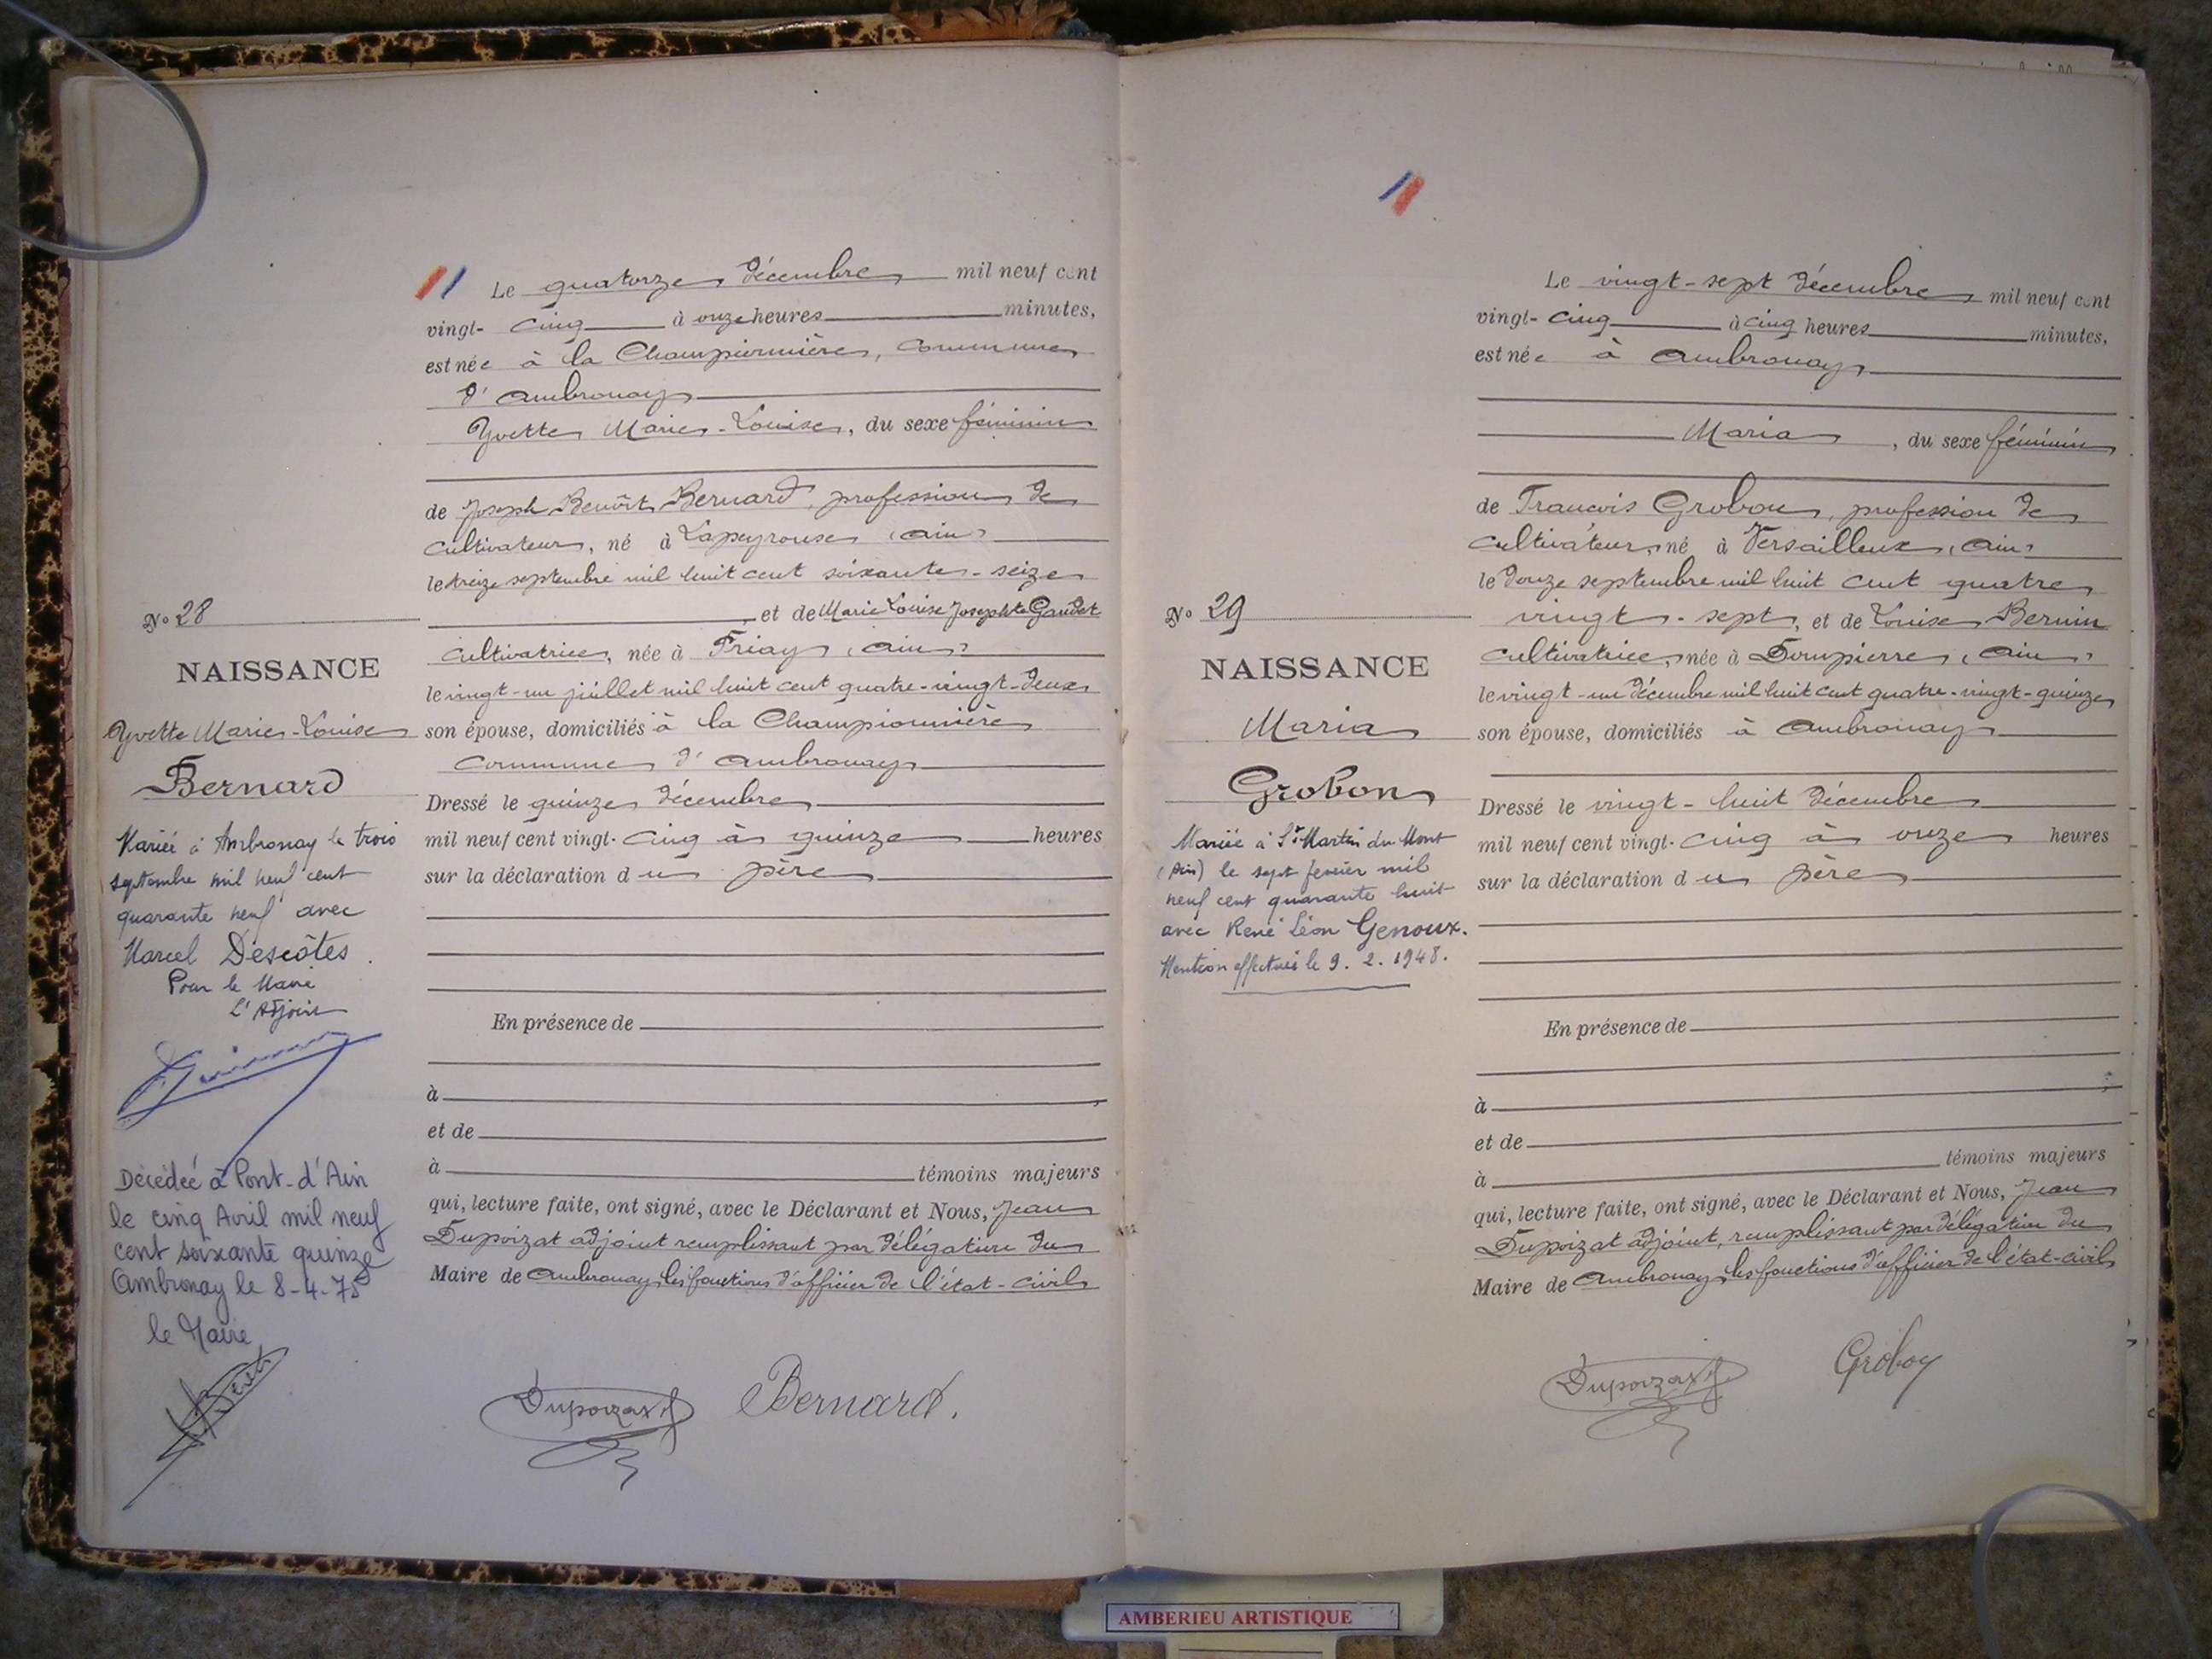 Le quatorze décembre mil neuf cent
vingt- cinq à onze heures minutes,
est née à la Championnière, commune
d'Ambronay
Yvette Marie-Louise, du sexe féminin
de Joseph Benoît Bernard, profession de
cultivateur, né à Lapeyrouse (Ain)
le treize septembre mil huit cent soixante-seize
, et de Marie Louise Josephte Gaudet
cultivatrice, née à Priay (Ain)
le vingt-un juillet mil huit cent quatre-vingt-deux
son épouse, domiciliés à la Championnière
commune d'Ambronay
Dressé le quinze décembre
mil neuf cent vingt- cinq à quinze heures
sur la déclaration du père
En présence de
à
et de
à témoins majeurs
qui, lecture faite, ont signé, avec le Déclarant et Nous, Jean
Dupoizat adjoint remplissant par délégation du
Maire de Ambronay les fonctions d'officier de l'état-civil
Dupoizat Bernard.
No 28
NAISSANCE
Yvette Marie-Louise
Bernard
Mariée à Ambronay le trois
septembre mil neuf cent
quarante neuf avec
Marcel Descôtes.
Pour le Maire
L'Adjoint
Décédée à Pont-d'Ain
le cinq Avril mil neuf
cent soixante quinze
Ambronay le 8-4-75
le Maire
Le vingt-sept décembre mil neuf cent
vingt- cinq à cinq heures minutes,
est née à Ambronay
Maria, du sexe féminin
de François Grobon, profession de
cultivateur, né à Versailleux (Ain)
le douze septembre mil huit cent quatre
vingt-sept, et de Louise Bernin
cultivatrice, née à Dompierre (Ain)
le vingt-un décembre mil huit cent quatre-vingt-quinze
son épouse, domiciliés à Ambronay
Dressé le vingt-huit décembre
mil neuf cent vingt- cinq à onze heures
sur la déclaration du père
En présence de
à
et de
à témoins majeurs
qui, lecture faite, ont signé, avec le Déclarant et Nous, Jean
Dupoizat adjoint, remplissant par délégation du
Maire de Ambronay les fonctions d'officier de l'état-civil
Dupoizat Grobon
No 29
NAISSANCE
Maria
Grobon
Mariée à St Martin du Mont
(Ain) le sept février mil
neuf cent quarante huit
avec René Léon Genoux.
Mention effectuée le 9. 2. 1948.
AMBERIEU ARTISTIQUE